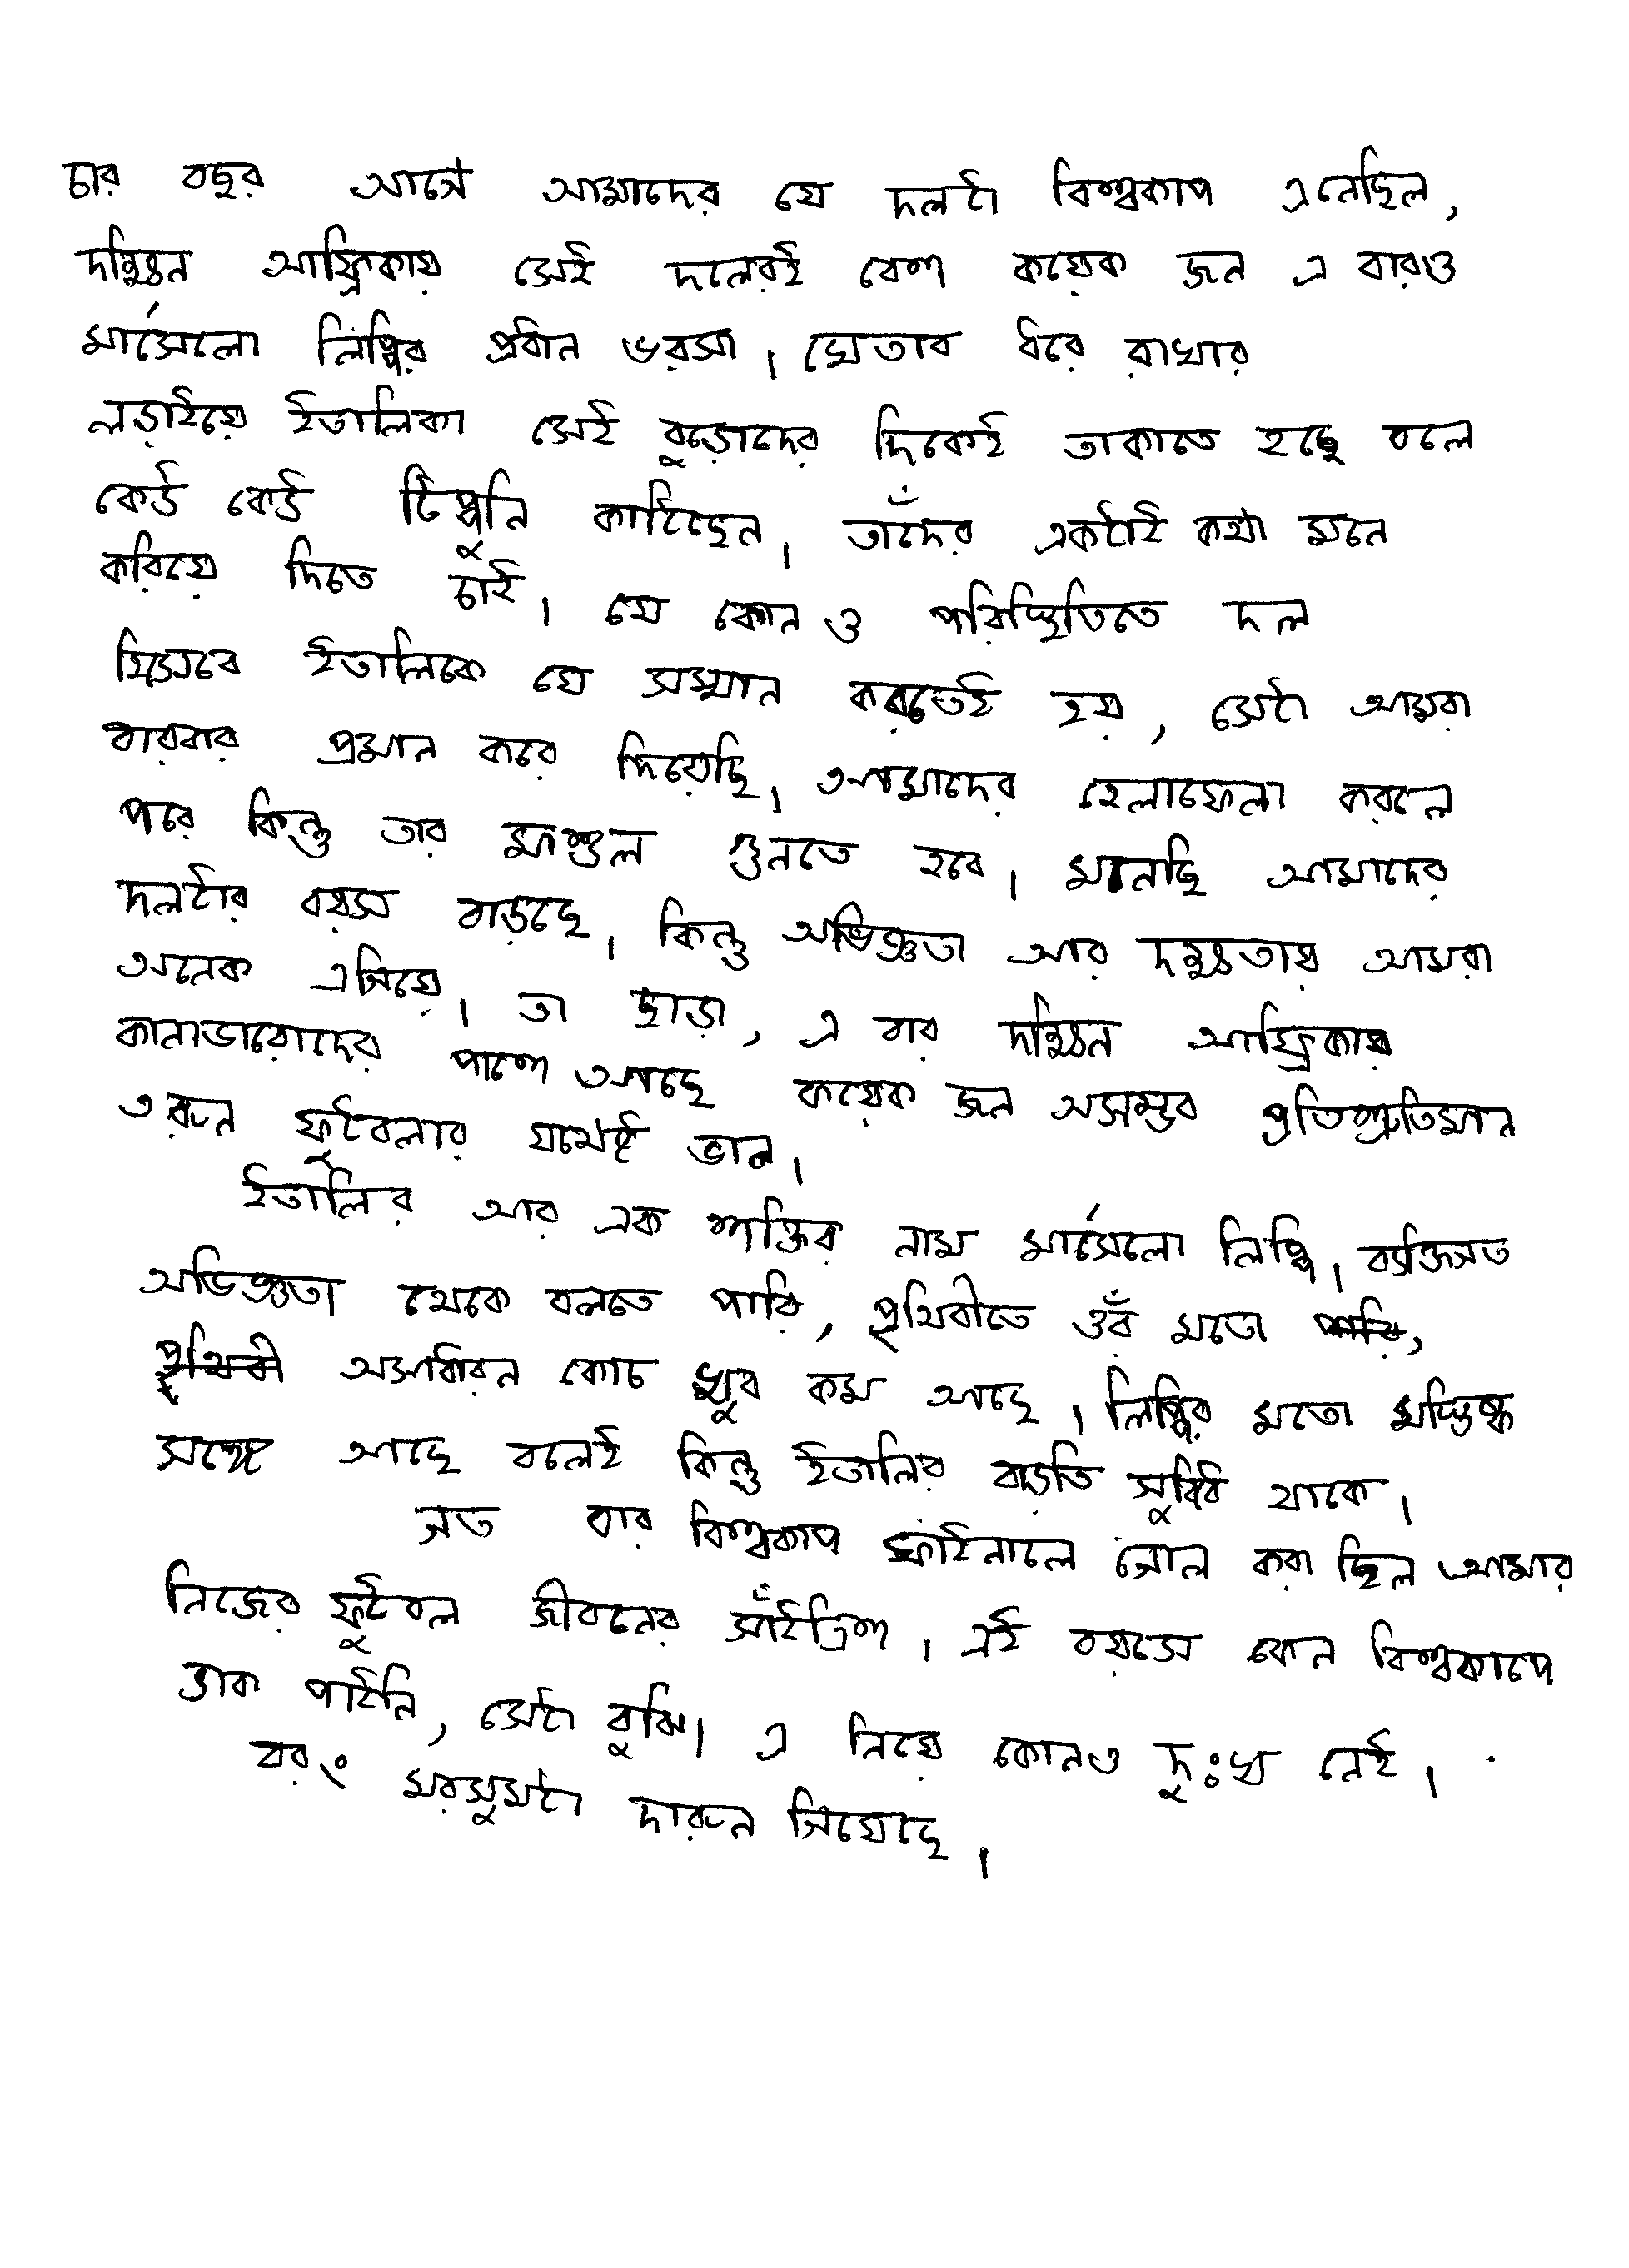 চার বছর আগে আমাদের যে দলটা বিশ্বকাপ এনেছিল,
দক্ষিন আফ্রিকায় সেই দলেরই বেশ কয়েক জন এ বারও
মার্সেলো লিপ্পির প্রধান ভরসা। খেতাব ধরে রাখার
লড়াইয়ে ইতালিকা সেই বুড়োদের দিকেই তাকাতে হচ্ছে বলে
কেউ কেউ টিপ্পুনি কাটছেন। তাঁদের একটাই কথা মনে
করিয়ে দিতে চাই। যে কোন ও পরিস্থিতিতে দল
হিসেবে ইতালিকে যে সম্মান করতেই হয়, সেটা আমরা
বারবার প্রমান করে দিয়েছি। আমাদের হেলাফেলা করলে
পরে কিন্তু তার মাশুল গুনতে হবে। মানছি আমাদের
দলটার বয়স বাড়ছে। কিন্তু অভিজ্ঞতা আর দক্ষতায় আমরা
অনেক এগিয়ে। তা ছাড়া, এ বার দক্ষিন আফ্রিকায়
কানাভারোদের পাশে আছে কয়েক জন অসম্ভব প্রতিশ্রুতিমান
তরুন ফুটবলার যথেষ্ট ভাল।
ইতালির আর এক শক্তির নাম মার্সেলো লিপ্পি। ব্যক্তিগত
অভিজ্ঞতা থেকে বলতে পারি, পৃথিবীতে ওঁর মতো পারি,
পৃথিবী অসাধারন কোচ খুব কম আছে। লিপ্পির মতো মস্তিষ্ক
সঙ্গে আছে বলেই কিন্তু ইতালির বাড়তি সুবিধি থাকে।
গত বার বিশ্বকাপ ফাইনালে গোল করা ছিল আমার
নিজের ফুটবল জীবনের সাঁইত্রিশ। এই বয়সে কেন বিশ্বকাপে
ডাক পাইনি, সেটা বুঝি। এ নিয়ে কোনও দুঃখ নেই।
বরং মরসুমটা দারুন গিয়েছে।